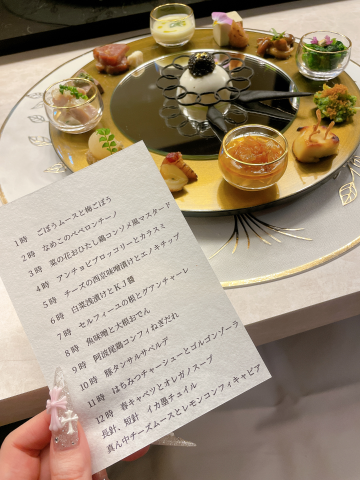 1時　ごぼうムースと梅ごぼう
2時　なめこのペペロンチーノ
3時　菜の花おひたし鶏コンソメ風マスタード
4時　アンチョビブロッコリーとカラスミ
5時　チーズの西京味噌漬けとエノキチップ
6時　白菜浅漬けとKJ醤
7時　セルフィーユの根とグアンチャーレ
8時　魚味噌と大根おでん
9時　阿波尾鶏コンフィねぎだれ
10時　豚タンサルサベルデ
11時　はちみつチャーシューとゴルゴンゾーラ
12時　春キャベツとオレガノスープ
長針、短針　イカ墨チュイル
真ん中チーズムースとレモンコンフィキャビア